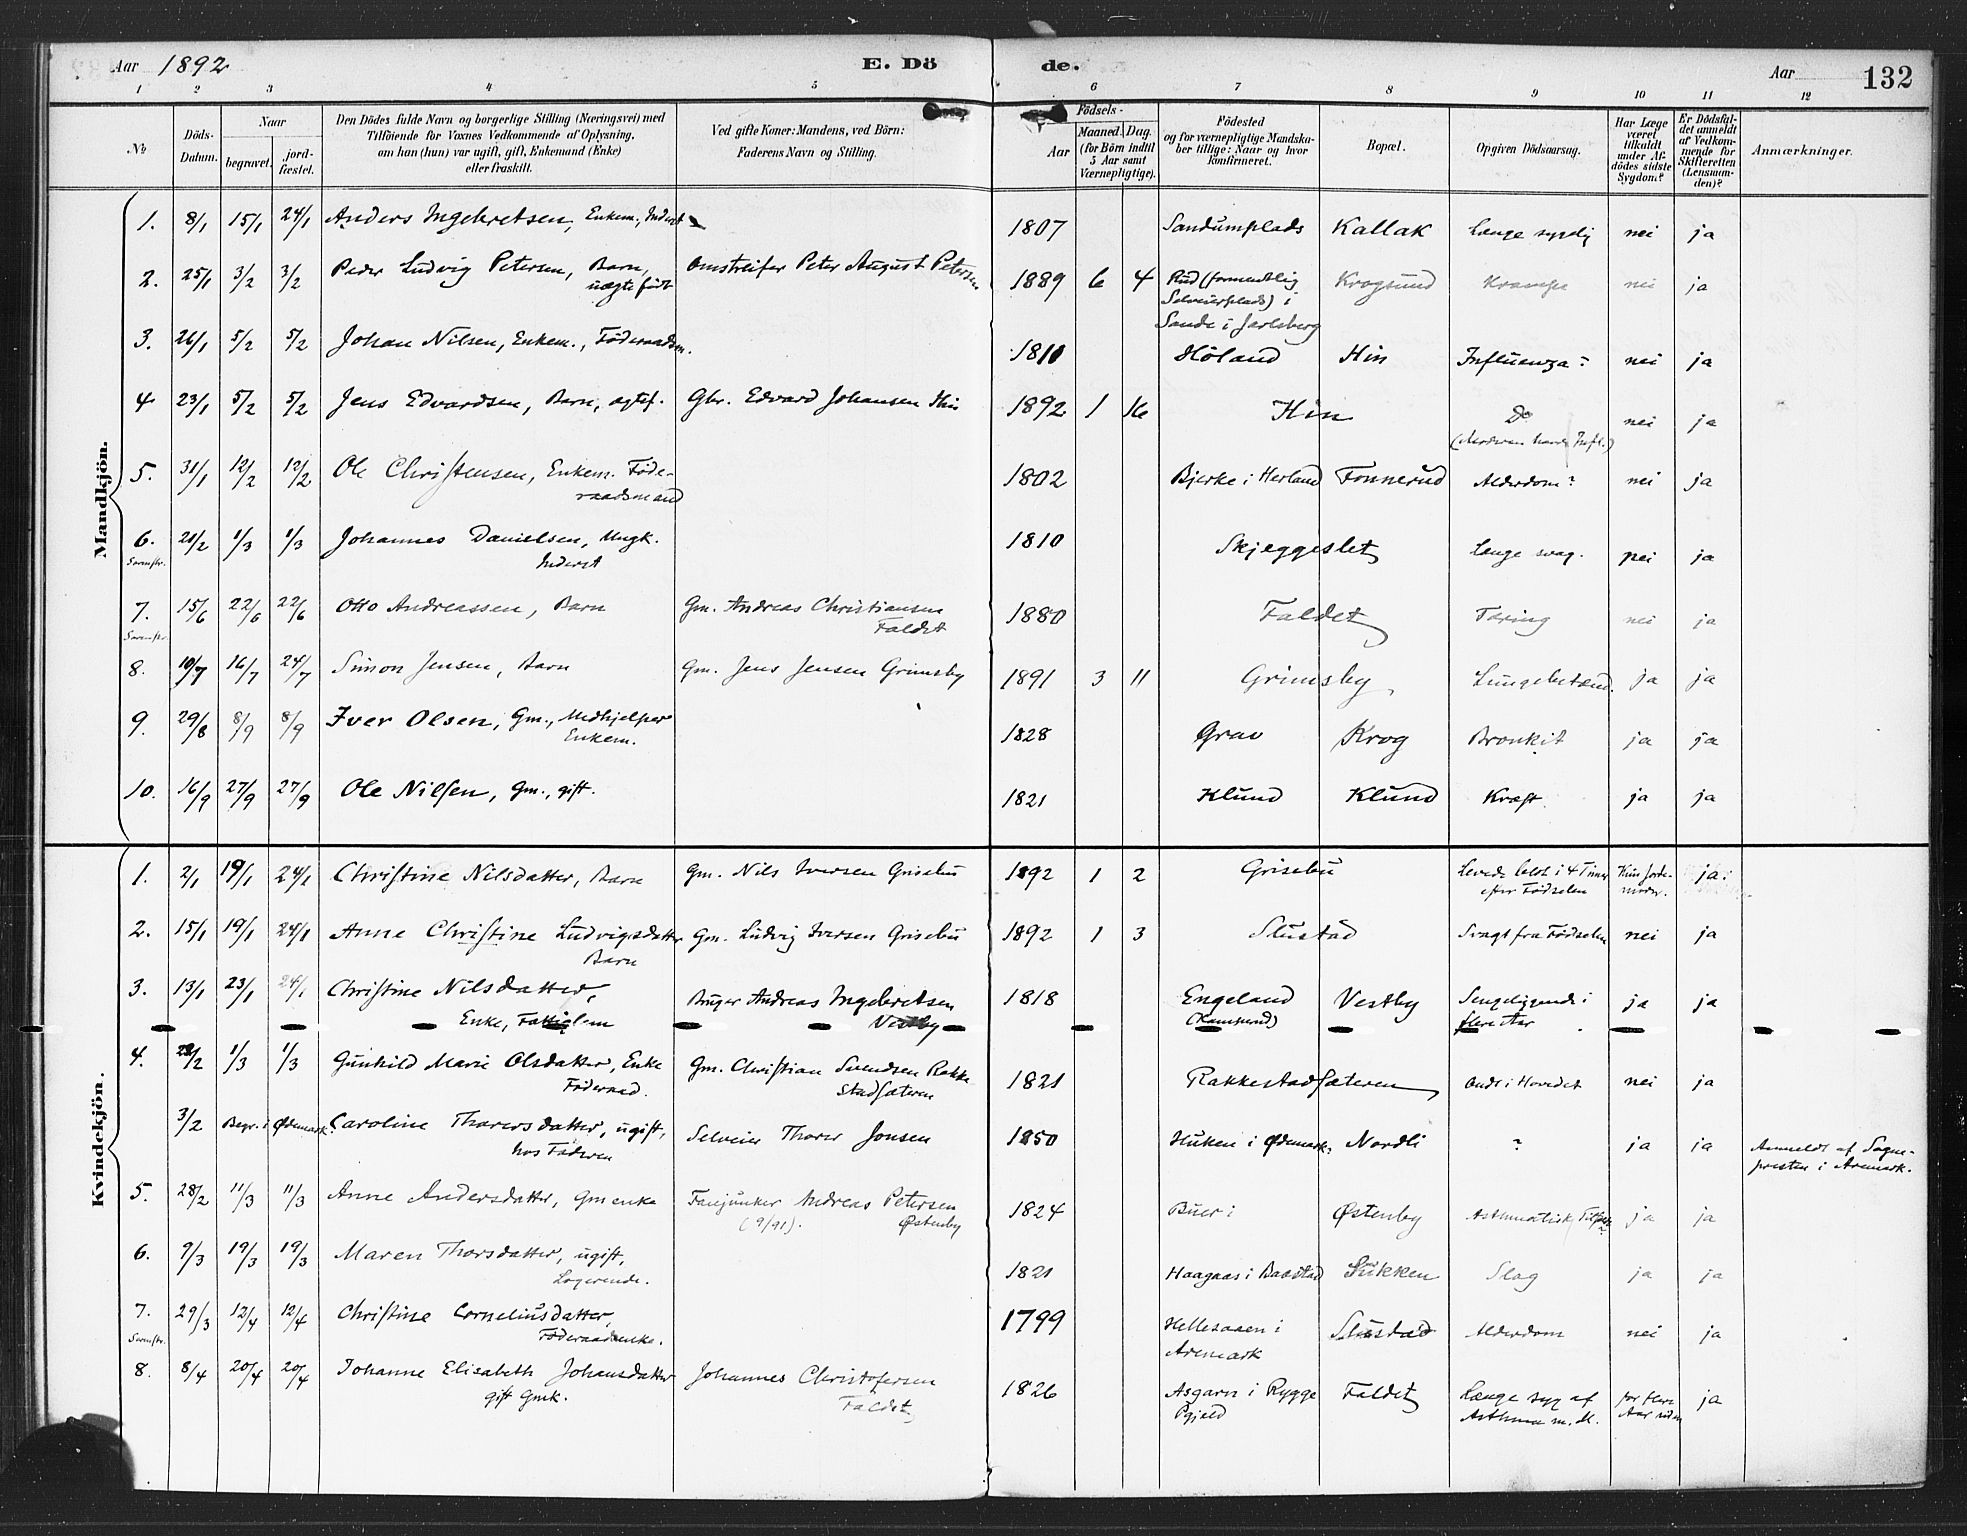 Aar 1892 E. Dö de. Aar 132
1 2 3 4 5 6 7 8 9 10 11 12
No
Döds-Datum.
Naar
begravet.
jord-fæstet.
Den Dödes fulde Navn og borgerlige Stilling (Næringsvei) med
Tilföiende for Voxnes Vedkommende af Oplysning,
om han (hun) var ugift, gift, Enkemand (Enke)
eller fraskilt.
Ved gifte Koner: Mandens, ved Börn:
Faderens Navn og Stilling.
Födsels-
Aar
Maaned. Dag.
(for Börn indtil
5 Aar samt
Værnepligtige).
Födested
og for værnepligtige Mandska-
ber tillige: Naar og hvor
konfirmeret.
Bopæl.
Opgiven Dödsaarsag.
Har Læge
været
tilkaldt
under Af-
dödes sidste
Sygdom?
Er Dödsfal-
det anmeldt
af Vedkom-
mende for
Skifteretten
(Lensman-
den)?
Anmærkninger.
Mandkjön.
1. 8/1 15/1 24/1 Anders Ingebretsen, Enkem., Inderst 1807 Sandumplads Kallak Længe sygelig nei ja
2. 25/1 3/2 3/2 Peder Ludvig Petersen, Barn, Omstreifer Peter August Petersen 1889 6 4 Rud (formentlig Krogsund Krampe nei ja
uægte födt Selveierplads) i
Sande i Jarlsberg
3. 26/1 5/2 5/2 Johan Nilsen, Enkem., Föderaadsm. 1810 Höland Hin Influenza? nei ja
4 23/1 5/2 5/2 Jens Edvardsen, Barn, ægtef. Gbr. Edvard Johansen Hin 1892 1 16 Hin Do nei ja
(Moderen havde Infl.)
5. 31/1 12/2 12/2 Ole Christensen, Enkem. Föde- 1802 Bjerke i Herland Tonnerud Alderdom? nei ja
raadsmand
6. 21/2 1/3 1/3 Johannes Danielsen, Ungk. 1810 Skjeggeslet Længe svag. nei ja
Inderst
7. 15/6 22/6 22/6 Otto Andreassen, Barn Gm. Andreas Christiansen 1880 Faldet Tæring nei ja
Faldet
8. 10/7 16/7 24/7 Simon Jensen, Barn Gm. Jens Jensen Grimsby 1891 3 11 Grimsby Lungebetænd. ja ja
9. 29/8 8/9 8/9 Iver Olsen, Gm., Medhjelper 1828 Grav Krog Bronkit ja ja
Enkem.
10. 16/9 27/9 27/9 Ole Nilsen, Gm., gift. 1821 Klund Klund Kræft ja ja
Kvindekjön.
1. 2/1 19/1 24/1 Christine Nilsdatter, Barn Gm. Nils Iversen Grisebu 1892 1 2 Grisebu Levede blot i 4 Timer Kun Jorde- ja
efter Födselen moder.
2. 15/1 19/1 24/1 Anne Christine Ludvigsdatter Gm. Ludvig Iversen Grisebu 1892 1 3 Slustad Svagt fra Födselen nei ja
Barn
3. 13/1 23/1 24/1 Christine Nilsdatter, Bruger Andreas Ingebretsen 1818 Engeland Vestby Sengeliggende i ja ja
Enke, Fattiglem Vestby flere Aar
4. 1/3 1/3 Gunhild Marie Olsdatter, Enke Gm. Christian Svendsen Rakke 1821 Rakkestadsæteren Ondt i Hovedet nei ja
Föderaad. stadsæteren
3/2 Begr. i Ødemark. Caroline Thorersdatter, ugift, Selveier Thorer Jonsen 1850 Huken i Ødemark Nordli ? ja ja Anmeldt af Sogne-
hos Faderen presten i Aremark.
5. 28/2 11/3 11/3 Anne Andersdatter, Gmenke Fanejunker Andreas Petersen 1824 Buer i Østenby Asthmatisk ja ja
(9/91). Østenby
6. 9/3 19/3 19/3 Maren Thorsdatter, ugift, 1821 Haagaas i Baastad Sukken Slag ja ja
Logerende.
7. 29/3 12/4 12/4 Christine Corneliusdatter, 1799 Hellesaaen i Slustad Alderdom nei ja
Föderaadsenke. Aremark
8. 8/4 20/4 20/4 Johanne Elisabeth Johansdatter Johannes Christofersen 1826 Asgarn i Rygge Faldet Længe syg af for flere ja
gift Gmk. Faldet Pgjeld Asthma m. M. Aar siden